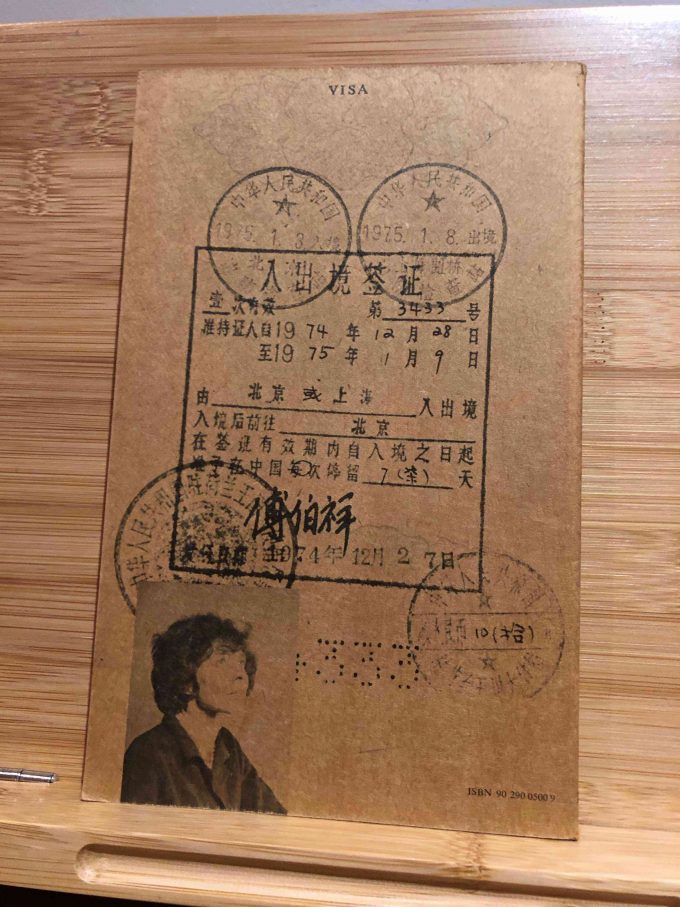 VISA
中华人民共和国
1975. 1. 8. 入境
中华人民共和国
1975. 1. 8. 出境
入出境签证
壹次有效 第 3433 号
准持证人自1974年12月28日
至1975年1月9日
由 北京或上海 入出境
入境后前往 北京
在签证有效期内自入境之日起
准予在中国每次停留 7(柒) 天
傅伯祥
1974年12月27日
中华人民共和国驻荷兰
10(拾)
ISBN 90 290 0500 9